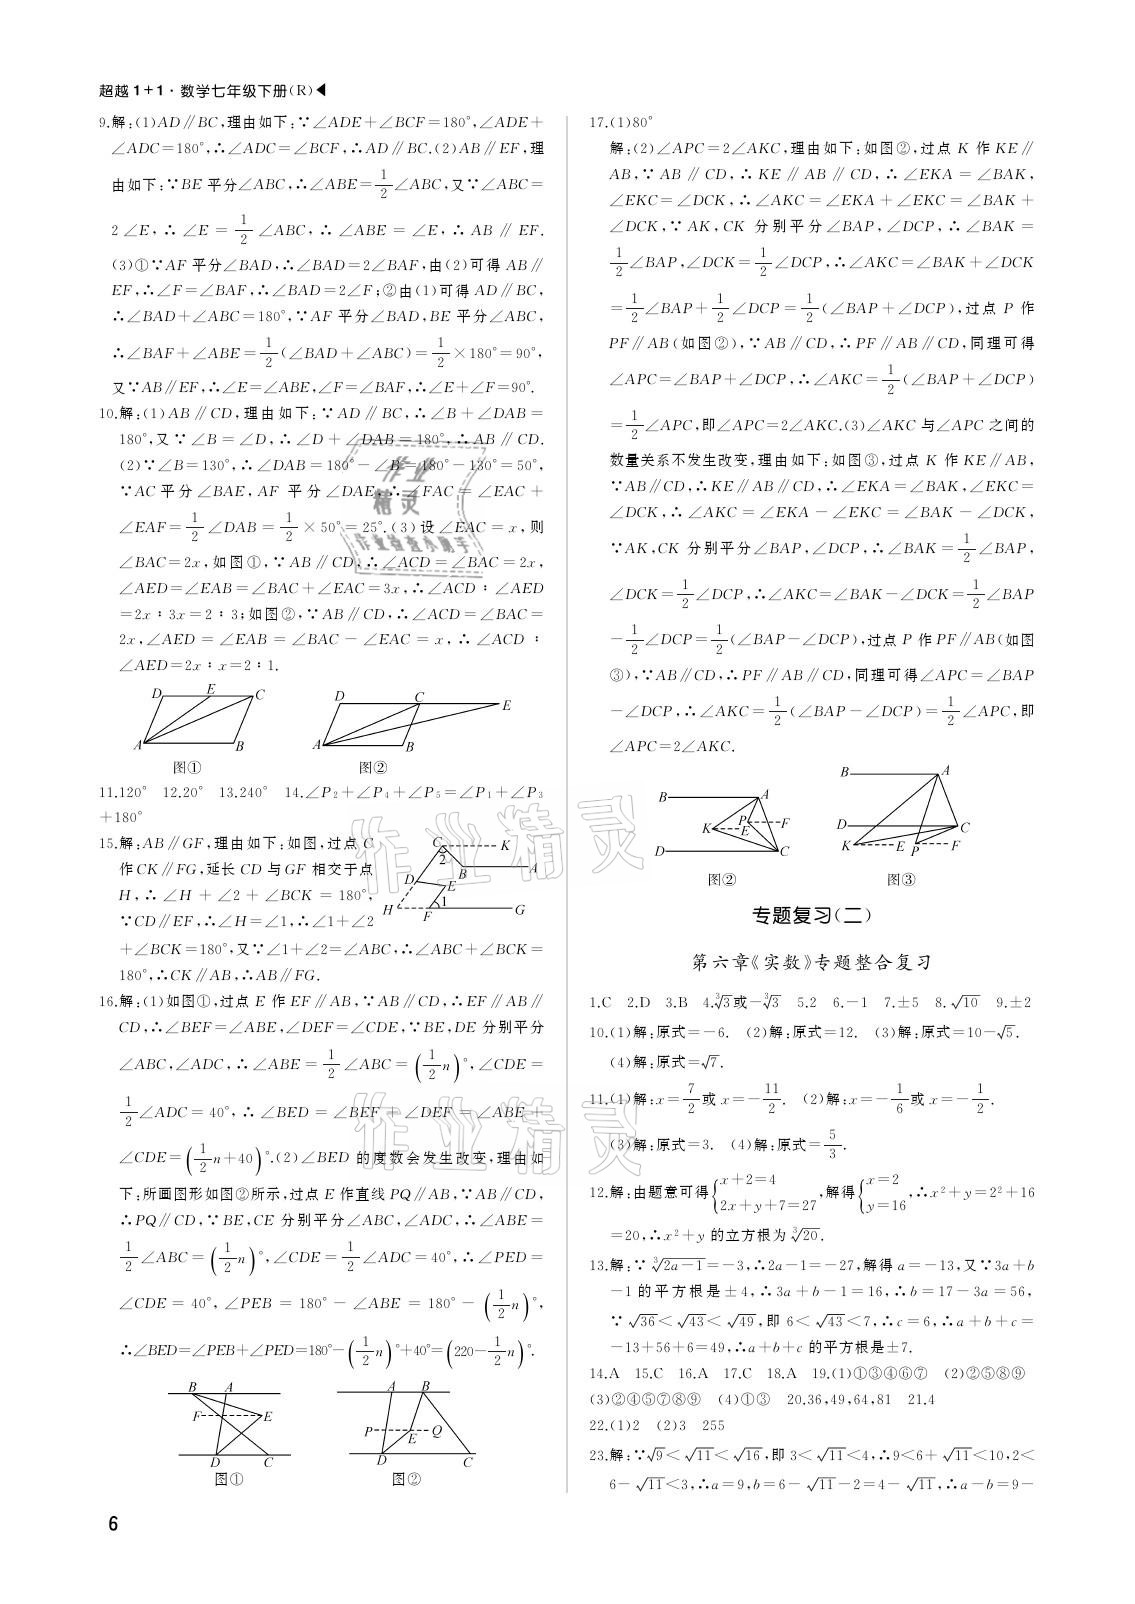 超越1+1·数学七年级下册(R)◀
9.解:(1)AD∥BC,理由如下:∵∠ADE+∠BCF=180°,∠ADE+
∠ADC=180°,∴∠ADC=∠BCF,∴AD∥BC.(2)AB∥EF,理
由如下:∵BE平分∠ABC,∴∠ABE=1/2∠ABC,又∵∠ABC=
2∠E,∴∠E=1/2∠ABC,∴∠ABE=∠E,∴AB∥EF.
(3)①∵AF平分∠BAD,∴∠BAD=2∠BAF,由(2)可得AB∥
EF,∴∠F=∠BAF,∴∠BAD=2∠F;②由(1)可得AD∥BC,
∴∠BAD+∠ABC=180°,∵AF平分∠BAD,BE平分∠ABC,
∴∠BAF+∠ABE=1/2(∠BAD+∠ABC)=1/2×180°=90°,
又∵AB∥EF,∴∠E=∠ABE,∠F=∠BAF,∴∠E+∠F=90°.
10.解:(1)AB∥CD,理由如下:∵AD∥BC,∴∠B+∠DAB=
180°,又∵∠B=∠D,∴∠D+∠DAB=180°,∴AB∥CD.
(2)∵∠B=130°,∴∠DAB=180°-∠B=180°-130°=50°,
∵AC平分∠BAE,AF平分∠DAE,∴∠FAC=∠EAC+
∠EAF=1/2∠DAB=1/2×50°=25°.(3)设∠EAC=x,则
∠BAC=2x,如图①,∵AB∥CD,∴∠ACD=∠BAC=2x,
∠AED=∠EAB=∠BAC+∠EAC=3x,∴∠ACD∶∠AED
=2x∶3x=2∶3;如图②,∵AB∥CD,∴∠ACD=∠BAC=
2x,∠AED=∠EAB=∠BAC-∠EAC=x,∴∠ACD∶
∠AED=2x∶x=2∶1.
D E C A B
图①
D C E A B
图②
11.120° 12.20° 13.240° 14.∠P₂+∠P₄+∠P₅=∠P₁+∠P₃
+180°
15.解:AB∥GF,理由如下:如图,过点C
作CK∥FG,延长CD与GF相交于点
H,∴∠H+∠2+∠BCK=180°,
∵CD∥EF,∴∠H=∠1,∴∠1+∠2
+∠BCK=180°,又∵∠1+∠2=∠ABC,∴∠ABC+∠BCK=
180°,∴CK∥AB,∴AB∥FG.
C K 2 B A D E H 1 F G
16.解:(1)如图①,过点E作EF∥AB,∵AB∥CD,∴EF∥AB∥
CD,∴∠BEF=∠ABE,∠DEF=∠CDE,∵BE,DE分别平分
∠ABC,∠ADC,∴∠ABE=1/2∠ABC=(1/2n)°,∠CDE=
1/2∠ADC=40°,∴∠BED=∠BEF+∠DEF=∠ABE+
∠CDE=(1/2n+40)°.(2)∠BED的度数会发生改变,理由如
下:所画图形如图②所示,过点E作直线PQ∥AB,∵AB∥CD,
∴PQ∥CD,∵BE,CE分别平分∠ABC,∠ADC,∴∠ABE=
1/2∠ABC=(1/2n)°,∠CDE=1/2∠ADC=40°,∴∠PED=
∠CDE=40°,∠PEB=180°-∠ABE=180°-(1/2n)°,
∴∠BED=∠PEB+∠PED=180°-(1/2n)°+40°=(220-1/2n)°.
B A F E D C
图①
A B P E Q D C
图②
17.(1)80°
解:(2)∠APC=2∠AKC,理由如下:如图②,过点K作KE∥
AB,∵AB∥CD,∴KE∥AB∥CD,∴∠EKA=∠BAK,
∠EKC=∠DCK,∴∠AKC=∠EKA+∠EKC=∠BAK+
∠DCK,∵AK,CK分别平分∠BAP,∠DCP,∴∠BAK=
1/2∠BAP,∠DCK=1/2∠DCP,∴∠AKC=∠BAK+∠DCK
=1/2∠BAP+1/2∠DCP=1/2(∠BAP+∠DCP),过点P作
PF∥AB(如图②),∵AB∥CD,∴PF∥AB∥CD,同理可得
∠APC=∠BAP+∠DCP,∴∠AKC=1/2(∠BAP+∠DCP)
=1/2∠APC,即∠APC=2∠AKC.(3)∠AKC与∠APC之间的
数量关系不发生改变,理由如下:如图③,过点K作KE∥AB,
∵AB∥CD,∴KE∥AB∥CD,∴∠EKA=∠BAK,∠EKC=
∠DCK,∴∠AKC=∠EKA-∠EKC=∠BAK-∠DCK,
∵AK,CK分别平分∠BAP,∠DCP,∴∠BAK=1/2∠BAP,
∠DCK=1/2∠DCP,∴∠AKC=∠BAK-∠DCK=1/2∠BAP
-1/2∠DCP=1/2(∠BAP-∠DCP),过点P作PF∥AB(如图
③),∵AB∥CD,∴PF∥AB∥CD,同理可得∠APC=∠BAP
-∠DCP,∴∠AKC=1/2(∠BAP-∠DCP)=1/2∠APC,即
∠APC=2∠AKC.
B A K E P F D C
图②
B A D C K E P F
图③
专题复习(二)
第六章《实数》专题整合复习
1.C 2.D 3.B 4.∛3或-∛3 5.2 6.-1 7.±5 8.√10 9.±2
10.(1)解:原式=-6. (2)解:原式=12. (3)解:原式=10-√5.
(4)解:原式=√7.
11.(1)解:x=7/2或x=-11/2. (2)解:x=-1/6或x=-1/2.
(3)解:原式=3. (4)解:原式=5/3.
12.解:由题意可得{x+2=4 2x+y+7=27,解得{x=2 y=16,∴x²+y=2²+16
=20,∴x²+y的立方根为∛20.
13.解:∵∛(2a-1)=-3,∴2a-1=-27,解得a=-13,又∵3a+b
-1的平方根是±4,∴3a+b-1=16,∴b=17-3a=56,
∵√36<√43<√49,即6<√43<7,∴c=6,∴a+b+c=
-13+56+6=49,∴a+b+c的平方根是±7.
14.A 15.C 16.A 17.C 18.A 19.(1)①③④⑥⑦ (2)②⑤⑧⑨
(3)②④⑤⑦⑧⑨ (4)①③ 20.36,49,64,81 21.4
22.(1)2 (2)3 255
23.解:∵√9<√11<√16,即3<√11<4,∴9<6+√11<10,2<
6-√11<3,∴a=9,b=6-√11-2=4-√11,∴a-b=9-
6
作业精灵
作业检查小助手
作业精灵
作业精灵